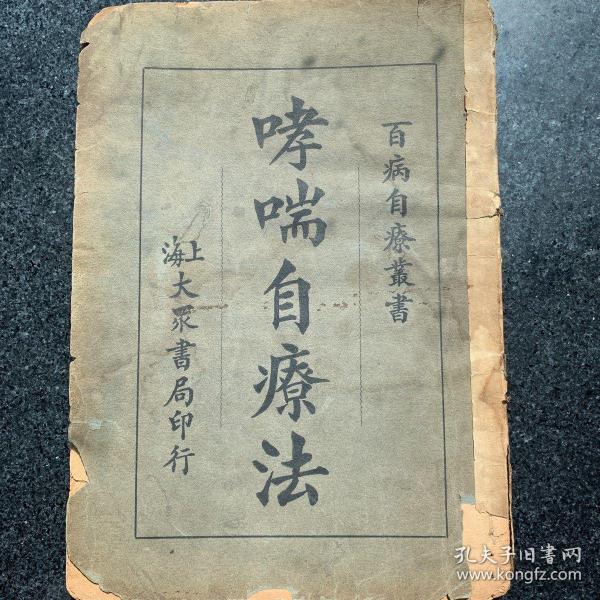 百病自療叢書
哮喘自療法
上海大眾書局印行
孔夫子旧書网
www.kongfz.com